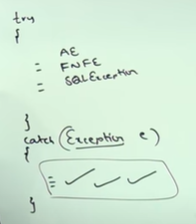 try
{
AE
= FNFE
= SQLException
}
catch (Exception e)
{
}